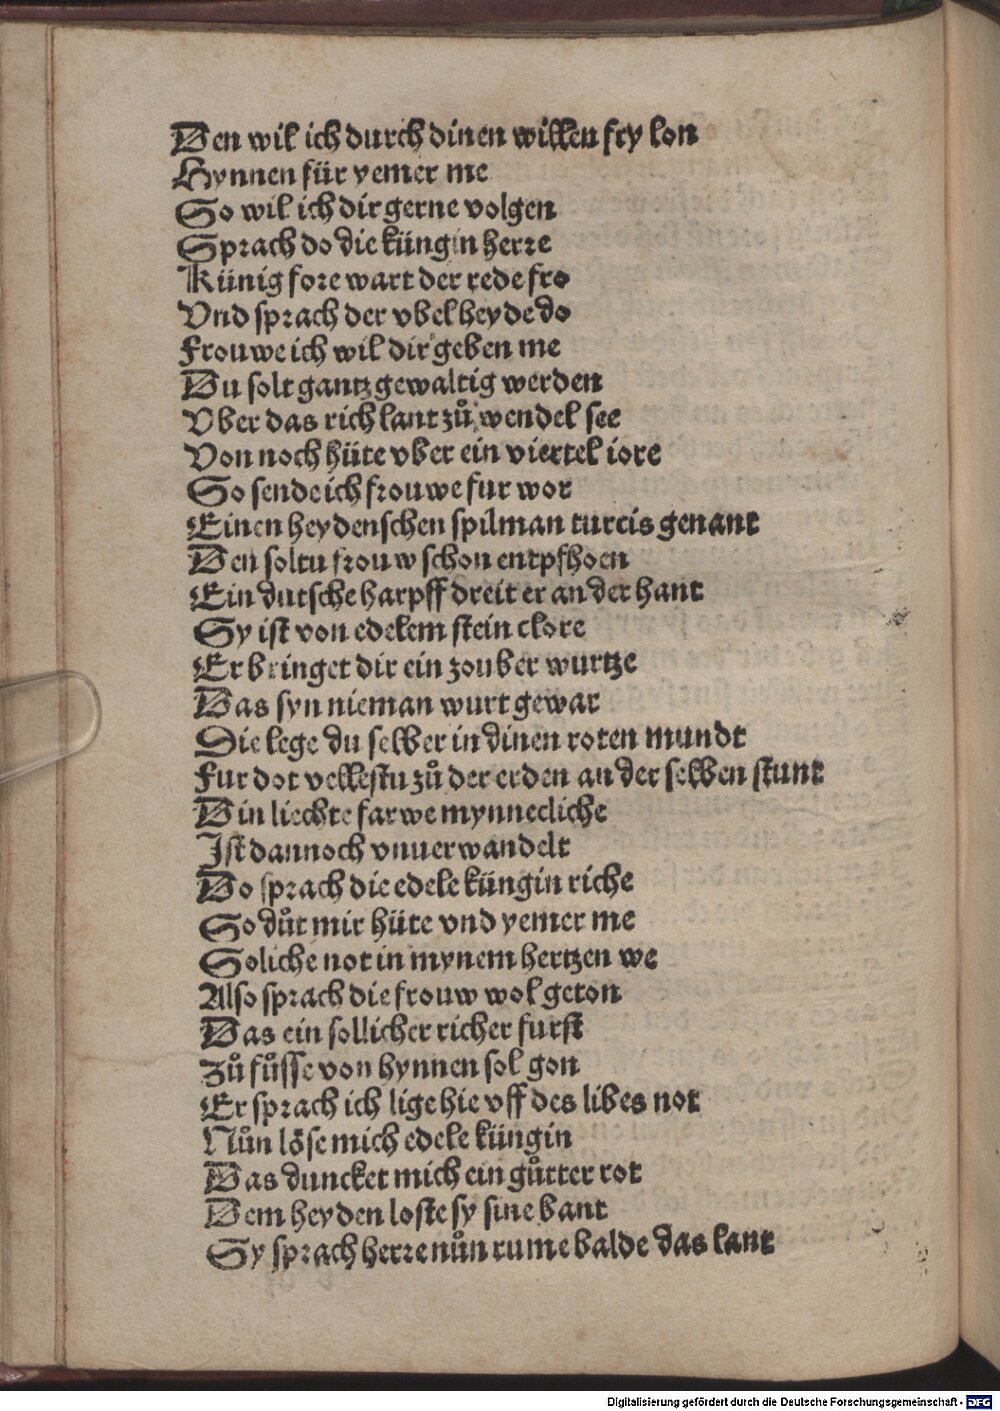 Den wil ich durch dinen willen fry lon
Hynnen für yemer me
So wil ich dir gerne volgen
Sprach do die küngin herre
Künig fore wart der rede fro
Vnd sprach der vbel heyde do
Frouwe ich wil dir geben me
Du solt gantz gewaltig werden
Vber das rich lant zů wendel see
Von noch hüte vber ein viertel iore
So sende ich frouwe fur wor
Einen heydenschen spilman turcis genant
Den soltu frouw schon entpfhoen
Ein dutsche harpff dreit er an der hant
Sy ist von edelem stein clore
Er bringet dir ein zouber wurtze
Das syn nieman wurt gewar
Die lege du selber in dinen roten mundt
Fur dot vellestu zů der erden an der selben stunt
Din liechte farwe mynnecliche
Ist dannoch vnuerwandelt
Do sprach die edele küngin riche
So důt mir hüte vnd yemer me
Soliche not in mynem hertzen we
Also sprach die frouw wol geton
Das ein sollicher richer furst
Zů fůsse von hynnen sol gon
Er sprach ich lige hie vff des libes not
Nůn löse mich edele küngin
Das duncket mich ein gůtter rot
Dem heyden loste sy sine bant
Sy sprach herre nůn rume balde das lant
Digitalisierung gefördert durch die Deutsche Forschungsgemeinschaft - DFG